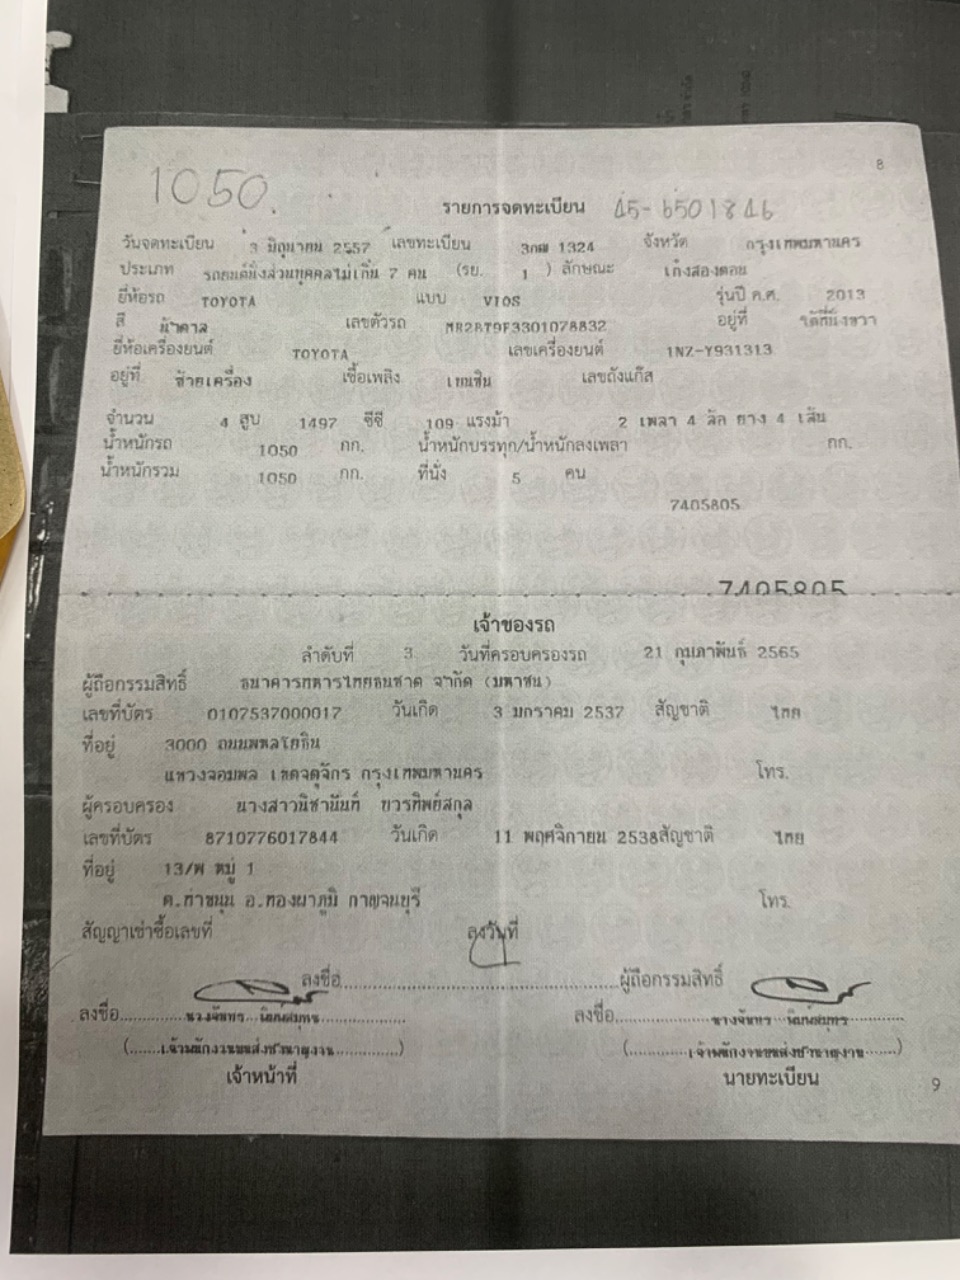 8
1050.
รายการจดทะเบียน 45-6501846
วันจดทะเบียน 3 มิถุนายน 2557 เลขทะเบียน 3กฒ 1324 จังหวัด กรุงเทพมหานคร
ประเภท รถยนต์นั่งส่วนบุคคลไม่เกิน 7 คน (รย. 1 ) ลักษณะ เก๋งสองตอน
ยี่ห้อรถ TOYOTA แบบ VIOS รุ่นปี ค.ศ. 2013
สี น้ำตาล เลขตัวรถ MR2BT9F3301078832 อยู่ที่ ใต้ที่นั่งขวา
ยี่ห้อเครื่องยนต์ TOYOTA เลขเครื่องยนต์ 1NZ-Y931313
อยู่ที่ ซ้ายเครื่อง เชื้อเพลิง เบนซิน เลขถังแก๊ส
จำนวน 4 สูบ 1497 ซีซี 109 แรงม้า 2 เพลา 4 ล้อ ยาง 4 เส้น
น้ำหนักรถ 1050 กก. น้ำหนักบรรทุก/น้ำหนักลงเพลา กก.
น้ำหนักรวม 1050 กก. ที่นั่ง 5 คน
7405805
7405805
เจ้าของรถ
ลำดับที่ 3 วันที่ครอบครองรถ 21 กุมภาพันธ์ 2565
ผู้ถือกรรมสิทธิ์ ธนาคารทหารไทยธนชาต จำกัด (มหาชน)
เลขที่บัตร 0107537000017 วันเกิด 3 มกราคม 2537 สัญชาติ ไทย
ที่อยู่ 3000 ถนนพหลโยธิน
แขวงจอมพล เขตจตุจักร กรุงเทพมหานคร โทร.
ผู้ครอบครอง นางสาวนิชานันท์ บวรทิพย์สกุล
เลขที่บัตร 8710776017844 วันเกิด 11 พฤศจิกายน 2538 สัญชาติ ไทย
ที่อยู่ 13/พ หมู่ 1
ต.ท่าขนุน อ.ทองผาภูมิ กาญจนบุรี โทร.
สัญญาเช่าซื้อเลขที่ ลงวันที่
ลงชื่อ ผู้ถือกรรมสิทธิ์
ลงชื่อ นางจันทร ลงชื่อ นางจันทร
(เจ้าพนักงานขนส่งชำนาญงาน) (เจ้าพนักงานขนส่งชำนาญงาน)
เจ้าหน้าที่ นายทะเบียน
9